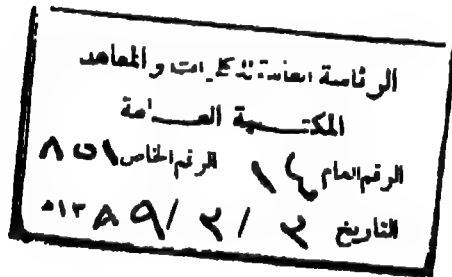 الرئاسة العامة للكليات والمعاهد
المكتبة العامة
الرقم العام ١٤ الرقم الخاص ٨٥١
التاريخ ٢ / ٢ / ١٣٨٩ه